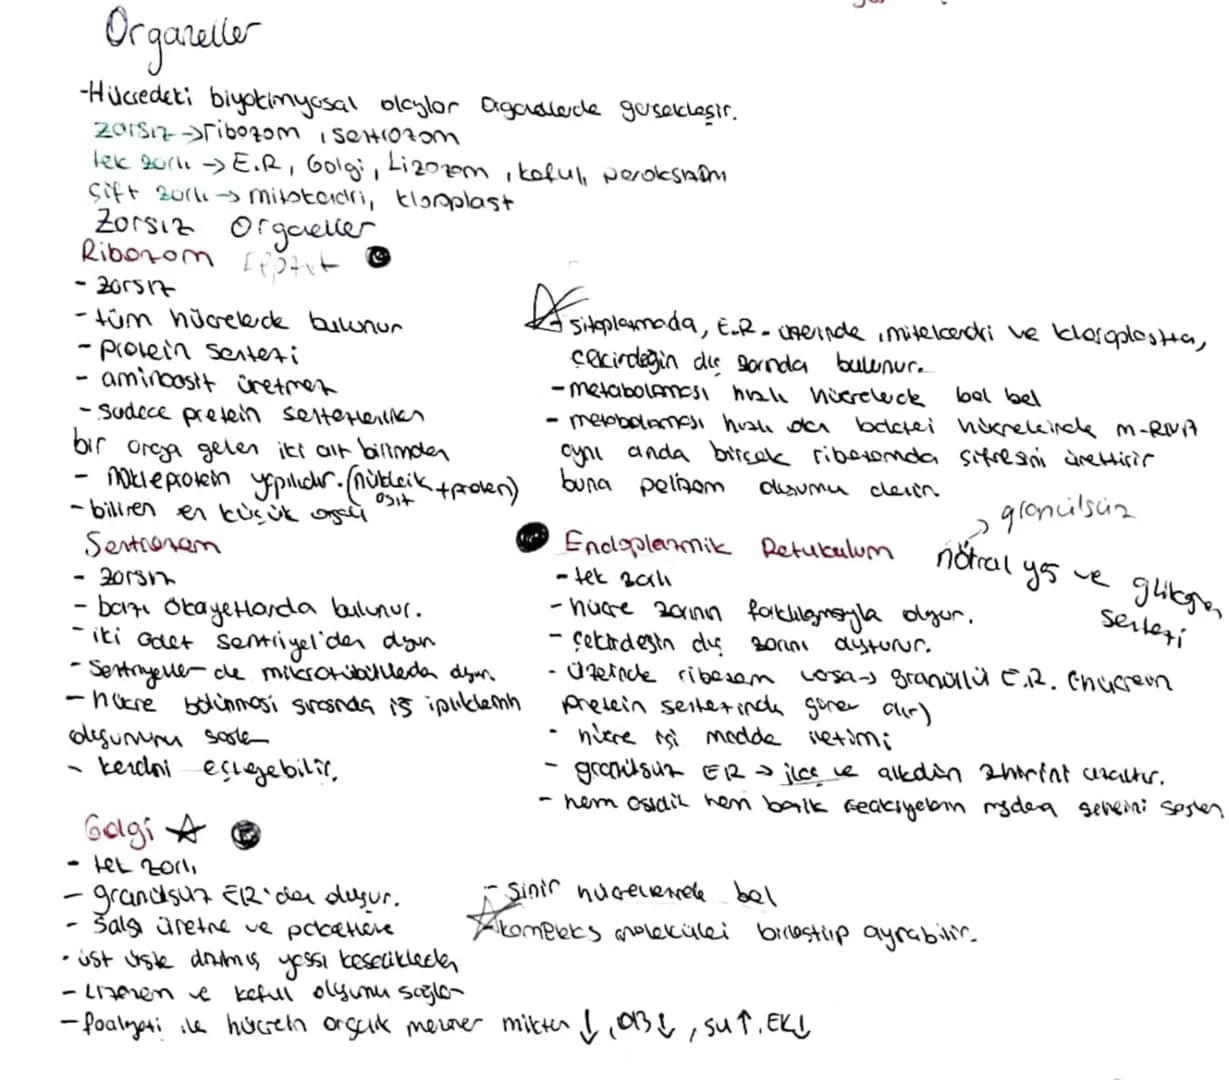 Organeller
-Hücredeki biyokimyasal olaylar organellerde gerçekleşir.
zarsız → ribozom, sentrozom
tek zarlı → E.R, Golgi, Lizozom, koful, peroksizom
Çift zarlı → mitokondri, kloroplast
Zarsız Organeller
Ribozom
- zarsız
- tüm hücrelerde bulunur
- protein sentezi
- aminoasit üretmez
- sadece protein sentezlenirken
bir araya gelen iki alt birimden
- nükleoprotein yapılıdır. (nükleik asit + protein)
- bilinen en küçük organel
Sitoplazmada, E.R. üzerinde, mitokondri ve kloroplastta,
çekirdeğin dış zarında bulunur.
- metabolizması hızlı hücrelerde bol bol
- metabolizması hızlı olan bakteri hücrelerinde m-RNA
aynı anda birçok ribozomda şifresini ürettirir
buna polizom durumu denir.
Sentrozom
- zarsız
- bazı ökaryotlarda bulunur.
- iki adet sentriyol'den oluşur
- Sentriyoller de mikrotübüllerden oluşur
- hücre bölünmesi sırasında iğ ipliklerinin
oluşumunu sağlar
- kendini eşleyebilir.
Endoplazmik Retukulum
→ granülsüz
nötral yağ ve glikojen
sentezi
- tek zarlı
- hücre zarının farklılaşmasıyla oluşur.
- çekirdeğin dış zarını oluşturur.
- üzerinde ribozom varsa → granüllü E.R.
protein sentezinde görev alır)
- hücre içi madde iletimi
- granülsüz ER → ilaç ve alkolün zehirini azaltır.
- hem asidik hem bazik reaksiyonların
Golgi
- tek zarlı
- granülsüz ER'den oluşur.
- Salgı üretme ve paketleme
- üst üste dizilmiş yassı keseciklerden
- Lizozom ve koful oluşumunu sağlar
- faaliyeti ile hücrenin organik monomer miktarı ↓, OB ↓, su ↑, EK ↓
- Sinir hücrelerinde bol
kompleks molekülleri birleştirip ayırabilir.